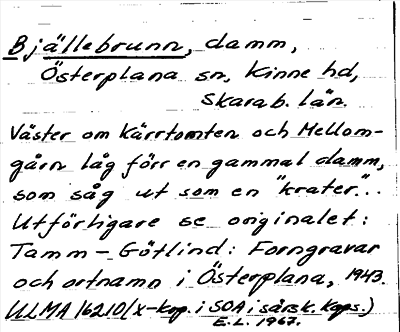 Bjällebrunn, damm,
Österplana sn, Kinne hd,
Skarab. län.
Väster om Kärrtomten och Mellom-
gårn låg förr en gammal damm,
som såg ut som en "krater"..
Utförligare se originalet:
Tamm - Götlind: Forngravar
och ortnamn i Österplana, 1943.
ULMA 16210 (x-kop. i SOA i särsk. kaps.)
E.L. 1967.